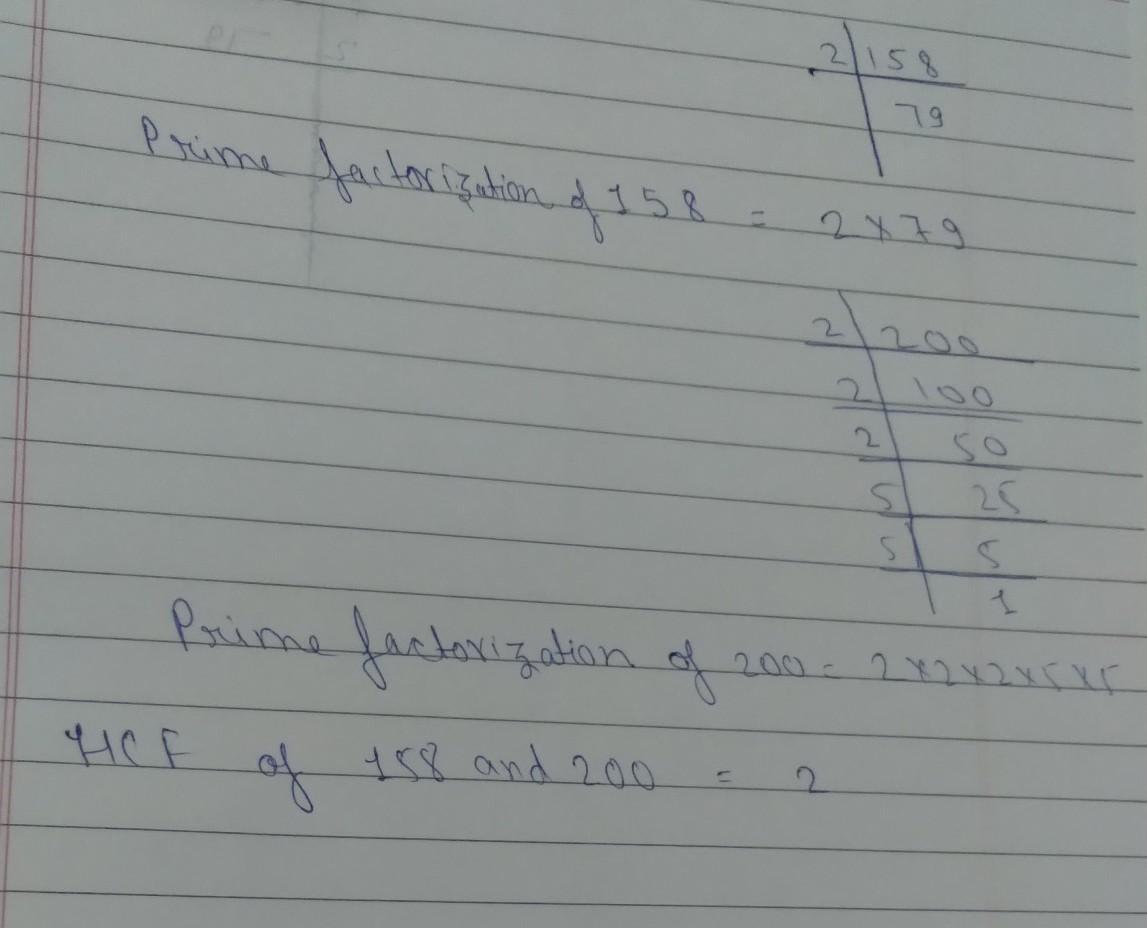 2 158
79
Prime factorization of 158 = 2 x 79
2 200
2 100
2 50
5 25
5 5
1
Prime factorization of 200 = 2x2x2x5x5
HCF of 158 and 200 = 2